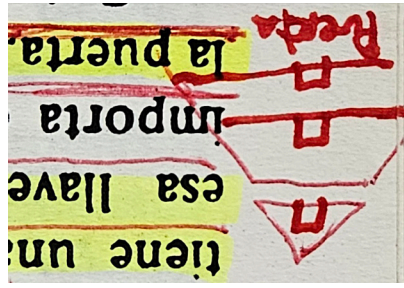 tiene una
esa llave
importa
la puerta,
Puerta